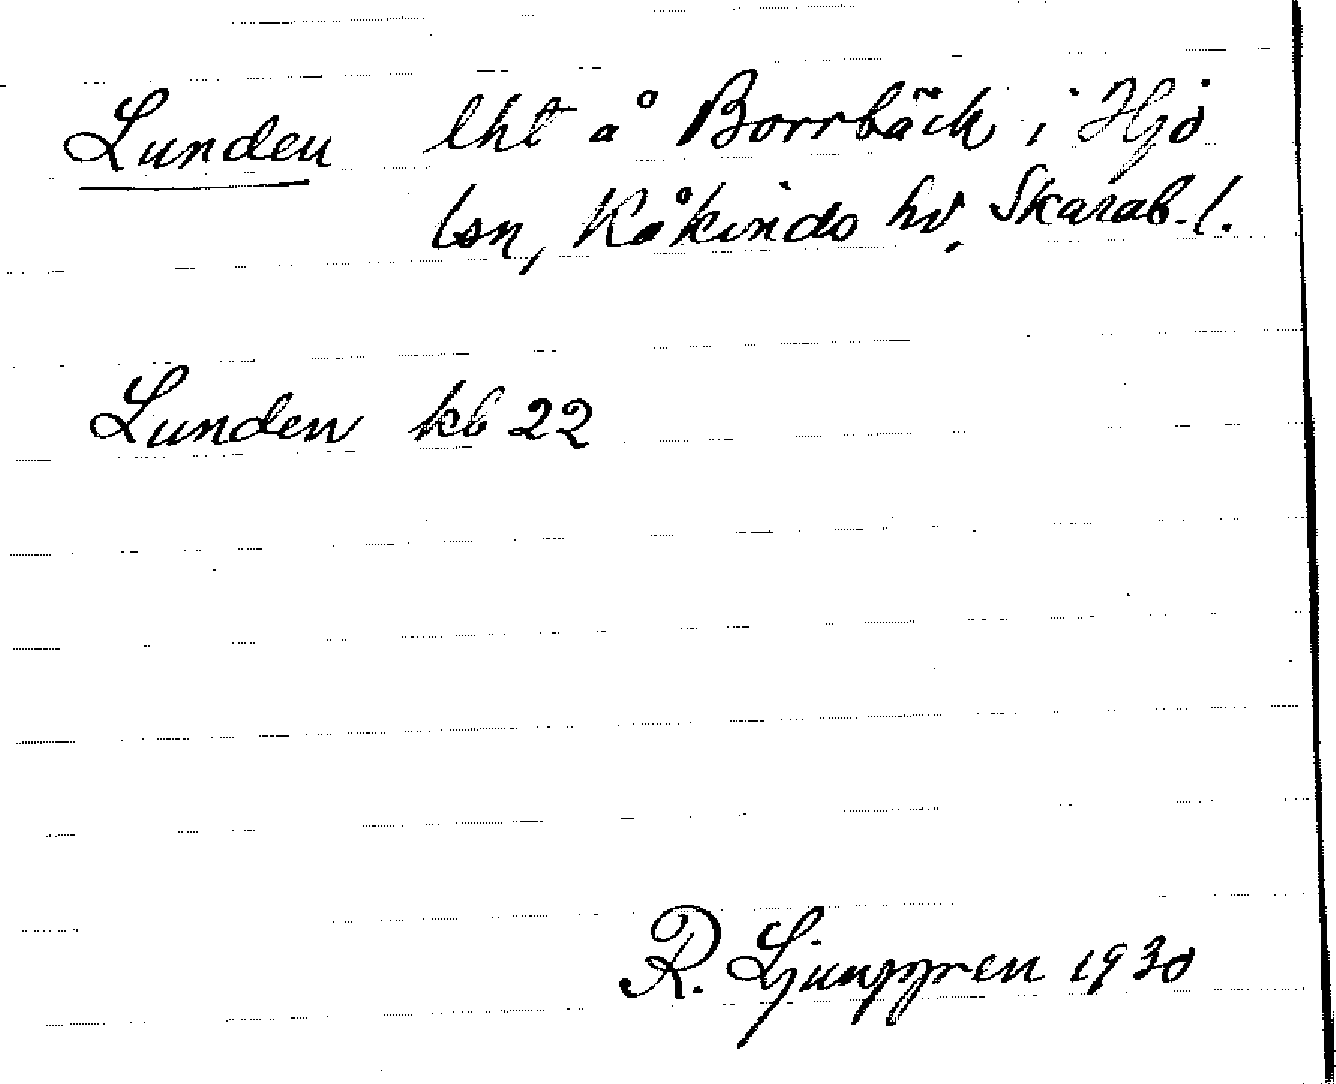 Lunden lht å Borrbäck i Hjo
lsn, Kåkinds hd, Skarab. l.
Lunden kb 22
R. Ljunggren 1930